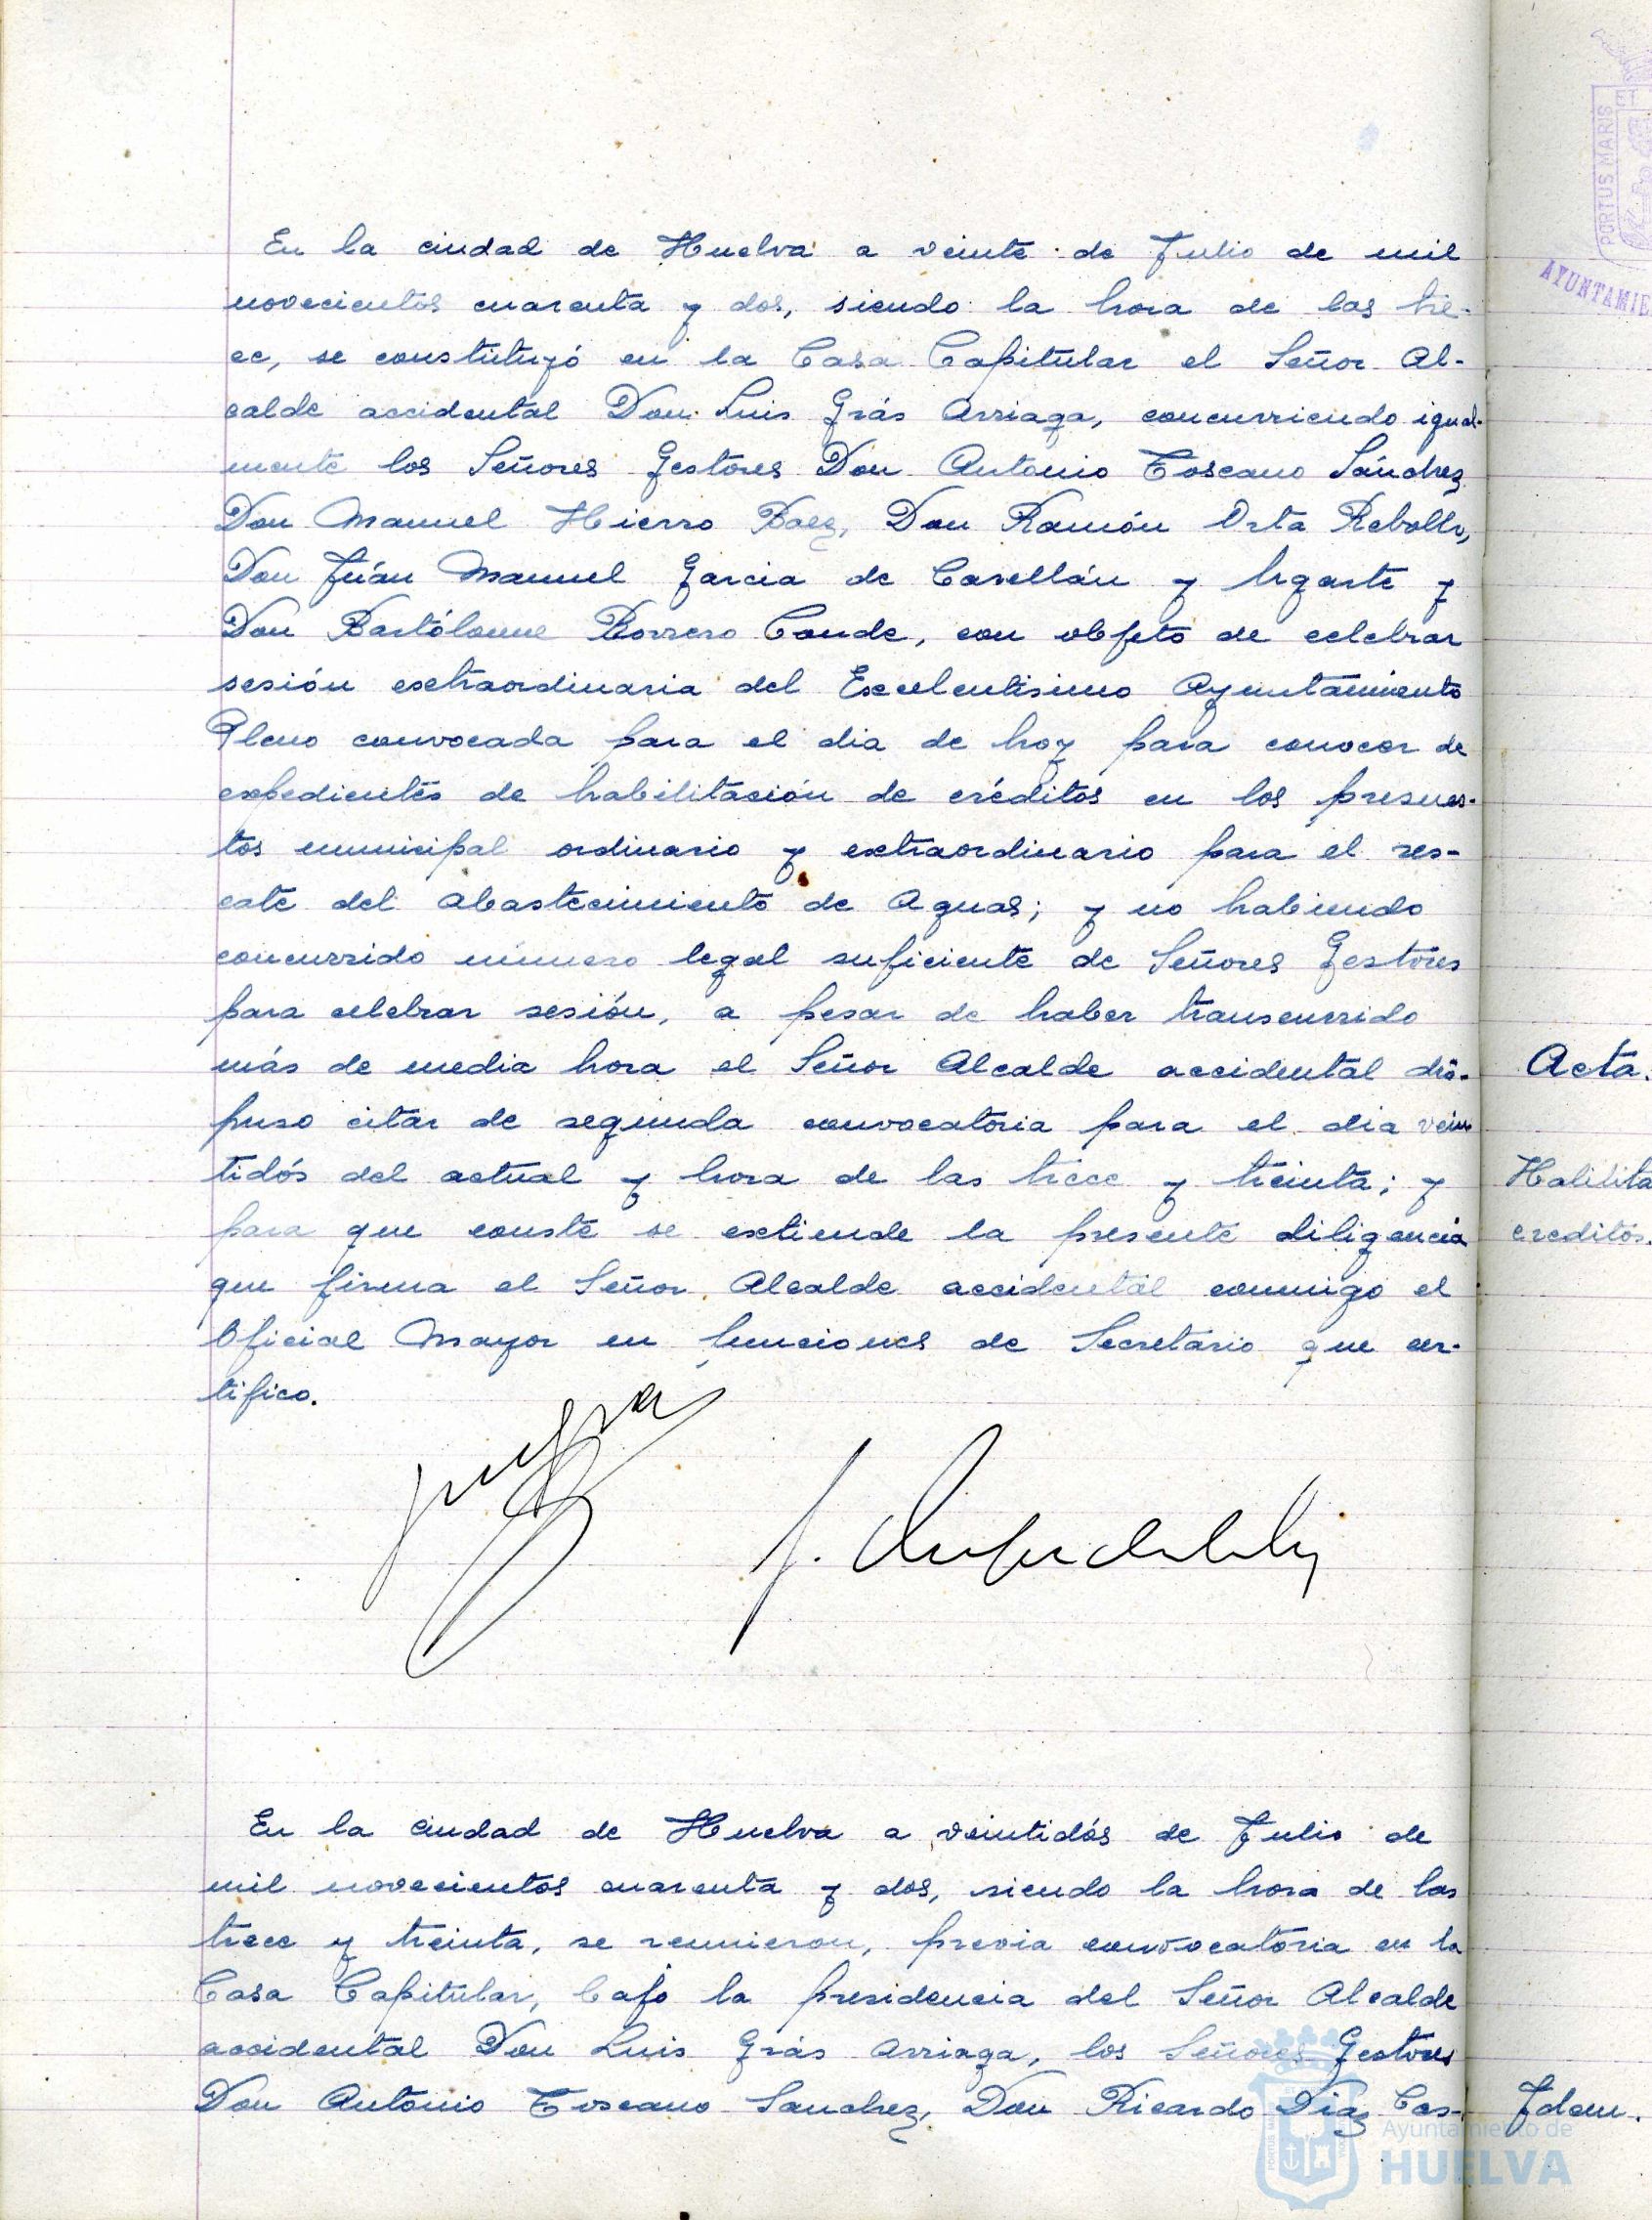 En la ciudad de Huelva a veinte de Julio de mil
novecientos cuarenta y dos, siendo la hora de las tre-
ce, se constituyó en la Casa Capitular el Señor Al-
calde accidental Don Luis Grás Arriaga, concurriendo igual-
mente los Señores Gestores Don Antonio Toscano Sánchez
Don Manuel Hierro Baez, Don Ramón Orta Rebollo,
Don Juán Manuel Garcia de Cavellán y Ugarte y
Don Bartólome Borrero Conde, con objeto de celebrar
sesión extraordinaria del Excelentisimo Ayuntamiento
Pleno convocada para el dia de hoy para conocer de
expedientes de habilitación de créditos en los presues-
tos municipal ordinario y extraordinario para el res-
cate del abastecimiento de Aguas; y no habiendo
concurrido número legal suficiente de Señores Gestores
para celebrar sesión, a pesar de haber transcurrido
más de media hora el Señor Alcalde accidental dis-
puso citar de segunda convocatoria para el dia vein
tidós del actual y hora de las trece y treinta; y
para que conste se extiende la presente diligencia
que firma el Señor Alcalde accidental conmigo el
Oficial Mayor en funciones de Secretario que cer-
tifico.
En la ciudad de Huelva a veintidós de Julio de
mil novecientos cuarenta y dos, siendo la hora de las
trece y treinta, se reunieron, previa convocatoria en la
Casa Capitular, bajo la presidencia del Señor Alcalde
accidental Don Luis Grás Arriaga, los Señores Gestores
Don Antonio Toscano Sanchez, Don Ricardo Diaz Cas-
PORTUS MARIS
ET
AYUNTAMIE
Acta.
Habilita
creditos.
Idem.
Ayuntamiento de
HUELVA